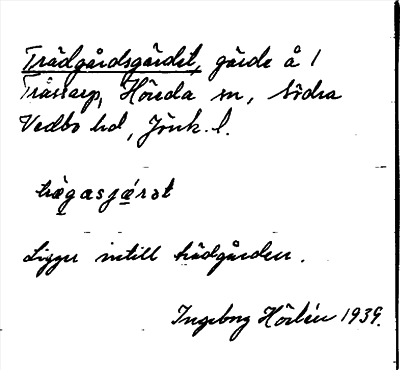 Trädgårdsgärdet, gärde å 1
Tråssarp, Höreda sn, Södra
Vedbo hd, Jönk. l.
trägasjæ´rət
Ligger intill trädgården.
Ingeborg Hörlén 1939.